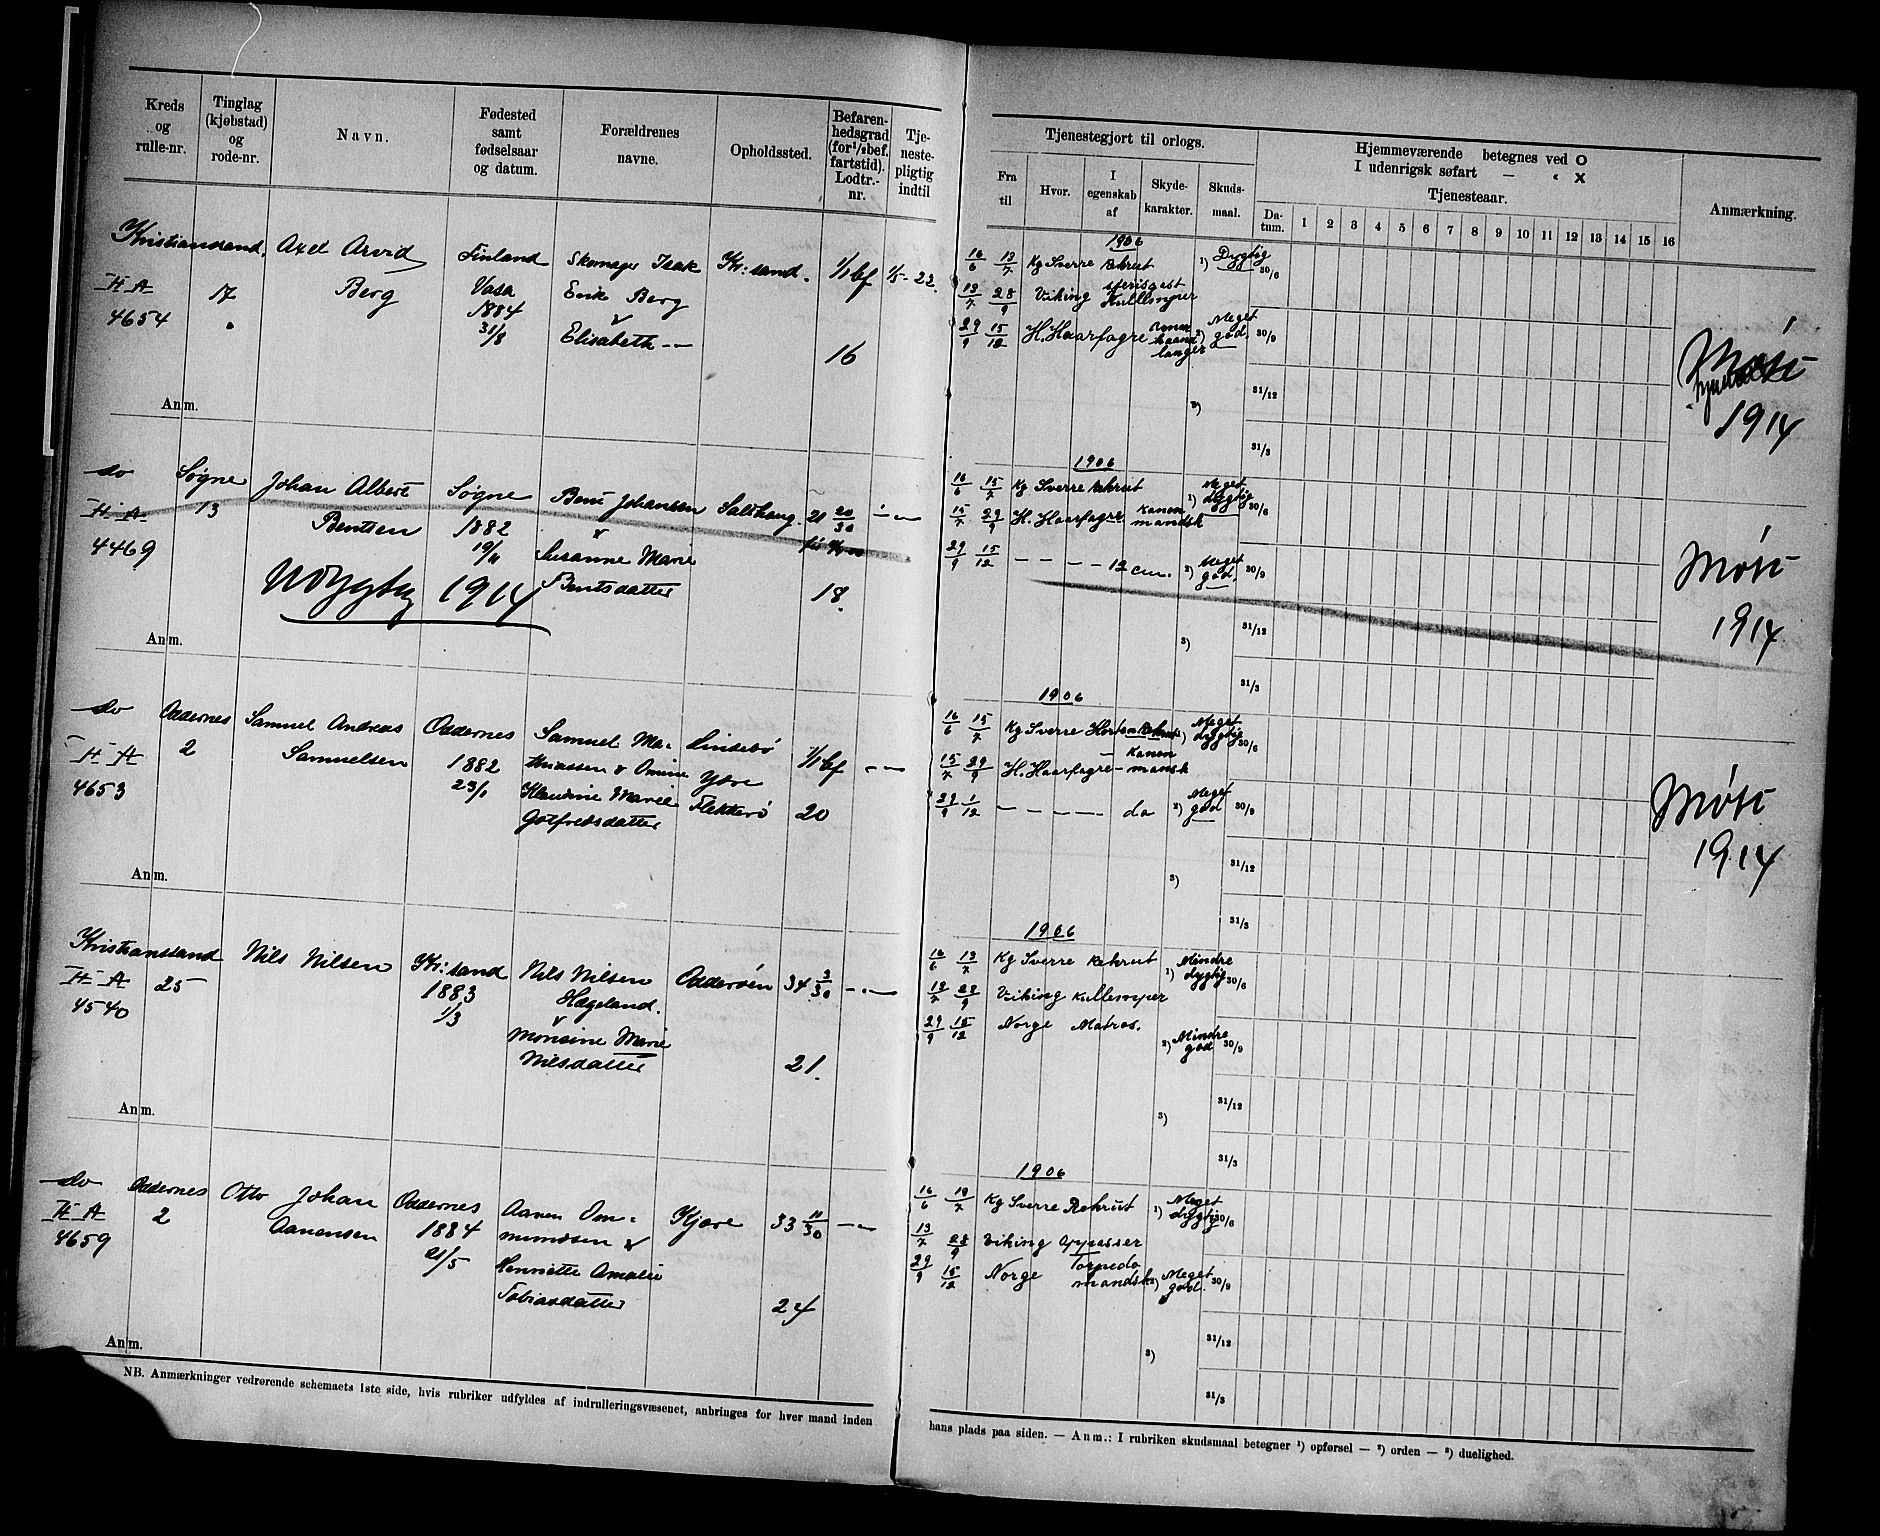 Kreds og rulle-nr.
Tinglag (kjøbstad) og rode-nr.
Navn.
Fødested samt fødselsaar og datum.
Forældrenes navne.
Opholdssted.
Befaren-hedsgrad (for 1/2 bef. fartstid). Lodtr.-nr.
Tje-neste-pligtig indtil
Tjenestegjort til orlogs.
Fra til
Hvor.
I egenskab af
Skyde-karakter.
Skuds-maal.
Hjemmeværende betegnes ved O
I udenrigsk søfart — « X
Tjenesteaar.
Da-tum. 1 2 3 4 5 6 7 8 9 10 11 12 13 14 15 16
Anmærkning.
Kristiansand. Axel Arvid Finland Skomager Isak Kr:sand. 1/1 bf 1/5-22.
II A 17 Berg Vasa Erik Berg
4654 1884 &
31/8 Elisabeth —
16
Anm.
1906
16/6 13/7 Kg Sverre Rekrut 1) Dygtig 30/6
13/7 28/9 Viking Kullemper
29/9 15/12 H. Haarfagre haand langer 2) Meget god. 30/9
3) 31/12
31/3
1914
do Søgne Johan Albert Søgne Bent Johansen Salthaug. 21 20/30 — —
II A 13 Bentsen 1882 &
4469 19/11 Susanne Marie
Bentsdatter 18.
1914
Anm.
1906
16/6 15/7 Kg Sverre Rekrut 1) Meget dygtig 30/6
15/7 29/9 H. Haarfagre Kanon mandsk
29/9 15/12 — — — 12 cm. 2) Meget god. 30/9
3) 31/12
31/3
Møtt
1914
do Oddernes Samuel Andreas Oddernes Samuel Ma- Lindebø 1/1 bf — —
II A 2 Samuelsen 1882 thiassen & Omine Ydre
4653 23/1 Klaudine Marie Flekkerø
Gotfredsdatter 20
Anm.
1906
16/6 15/7 Kg Sverre Horten Rekrut 1) Meget dygtig 30/6
15/7 29/9 H. Haarfagre — Kanon mansk
29/9 1/12 — — — — do 2) Meget god 30/9
3) 31/12
31/3
Møtt
1914
Kristianssand Nils Nilsen Kr:sand Nils Nilsen Odderøen 34 3/30 — —
II A 25 1883 Hægeland.
4540 1/3 &
Monsine Marie
Nilsdatter 21.
Anm.
1906
16/6 13/7 Kg Sverre Rekrut 1) Mindre dygtig 30/6
13/7 28/9 Viking Kullemper
29/9 15/12 Norge Matros. 2) Mindre god 30/9
3) 31/12
31/3
do Oddernes Otto Johan Oddernes Aanen Om- Kjære 33 11/30 — —
II A 2 Aanensen 1884 mundsen &
4659 21/5 Henriette Amalie
Tobiasdatter 24
Anm.
1906
16/6 13/7 Kg Sverre Rekrut 1) Meget dygtig 30/6
13/7 28/9 Viking Oppasser
29/9 15/12 Norge Torpedo mandsk 2) Meget god. 30/9
3) 31/12
31/3
NB. Anmærkninger vedrørende schemaets 1ste side, hvis rubriker udfyldes af indrulleringsvæsenet, anbringes for hver mand inden
hans plads paa siden. — Anm.: I rubriken skudsmaal betegner ¹) opførsel — ²) orden — ³) duelighed.